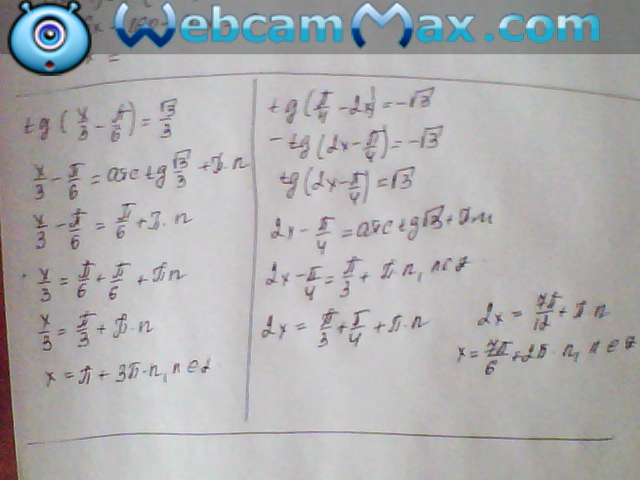 WebcamMax.com
x =
tg(x/3 - π/6) = √3/3
x/3 - π/6 = arctg √3/3 + π·n
x/3 - π/6 = π/6 + π·n
x/3 = π/6 + π/6 + πn
x/3 = π/3 + π·n
x = π + 3π·n, n∈z
tg(π/4 - 2x) = -√3
-tg(2x - π/4) = -√3
tg(2x - π/4) = √3
2x - π/4 = arctg √3 + πn
2x - π/4 = π/3 + π·n, n∈z
2x = π/3 + π/4 + π·n
2x = 7π/12 + π·n
x = 7π/6 + 2π·n, n∈z